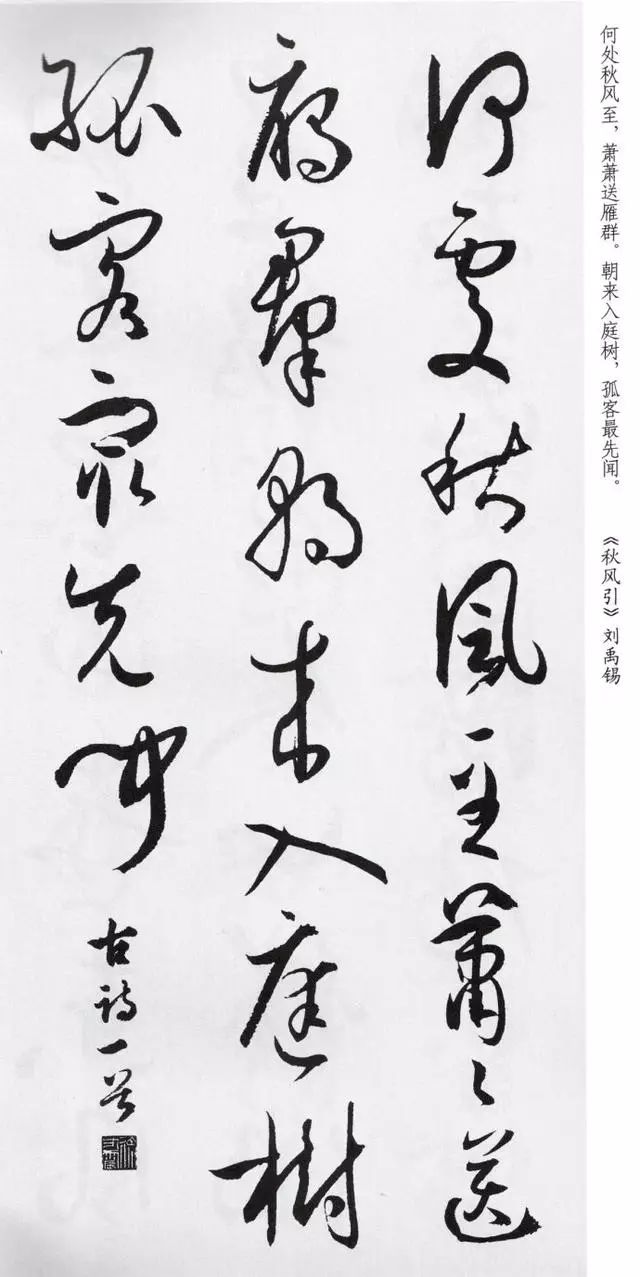 何处秋风至，萧萧送雁群。朝来入庭树，孤客最先闻。 《秋风引》刘禹锡
何處秋風至蕭々送
雁羣朝來入庭樹
孤客最先聞
古詩一首